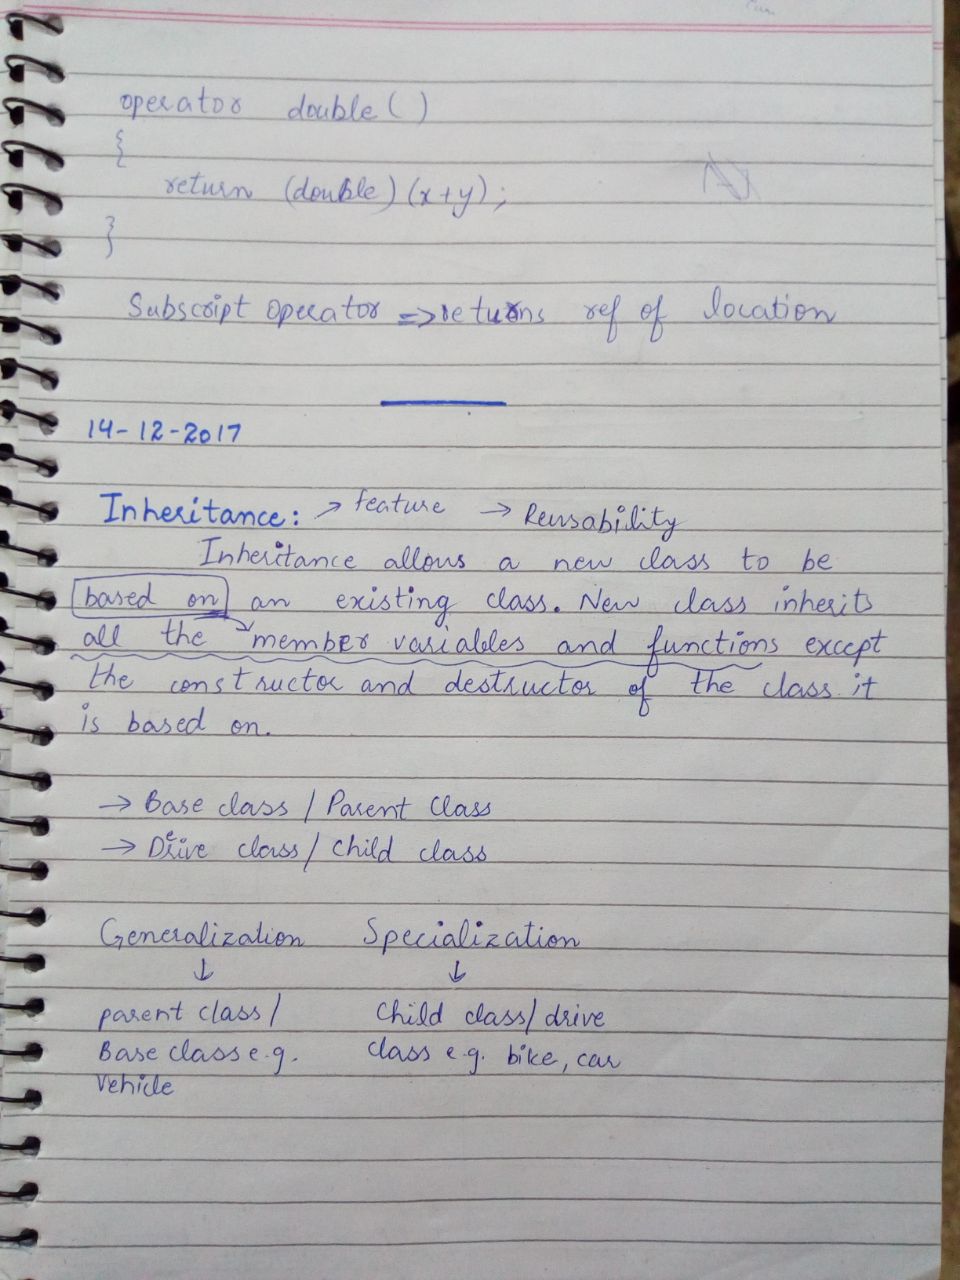 operator double()
{
return (double)(x+y);
}
Subscript operator => returns ref of location
14-12-2017
Inheritance: → feature → Reusability
Inheritance allows a new class to be
based on an existing class. New class inherits
all the member variables and functions except
the constructor and destructor of the class it
is based on.
→ Base class / Parent Class
→ Derive class / child class
Generalization Specialization
↓ ↓
parent class / Child class/drive
Base class e.g. class e.g. bike, car
Vehicle